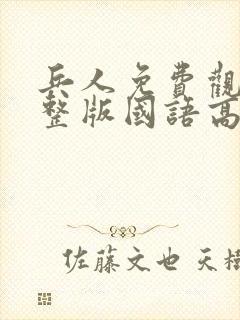 兵人免費觀
整版國語高
佐藤文也 天樹